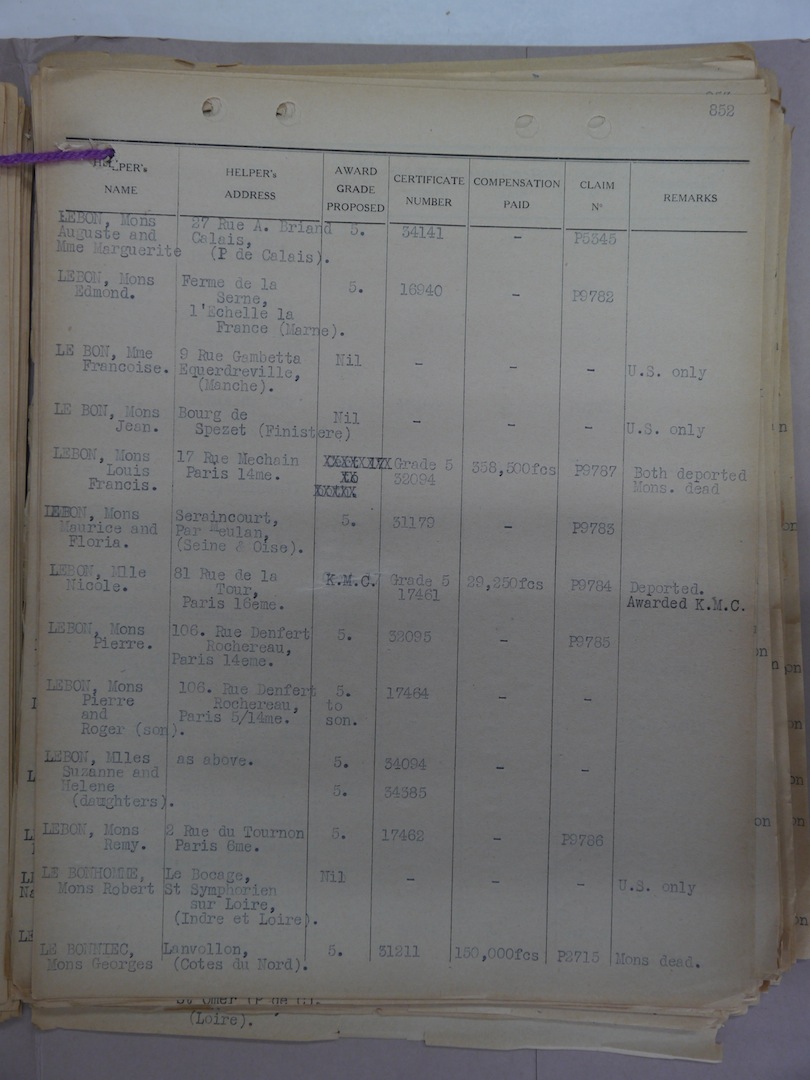 852
HELPER's NAME HELPER's ADDRESS AWARD GRADE PROPOSED CERTIFICATE NUMBER COMPENSATION PAID CLAIM Nº REMARKS
LEBON, Mons 27 Rue A. Briand 5. 34141 - P5345
Auguste and Calais,
Mme Marguerite (P de Calais).
LEBON, Mons Ferme de la 5. 16940 - P9782
Edmond. Serne,
l'Echelle la
France (Marne).
LE BON, Mme 9 Rue Gambetta Nil - - - U.S. only
Francoise. Equerdreville,
(Manche).
LE BON, Mons Bourg de Nil - - - U.S. only
Jean. Spezet (Finistere)
LEBON, Mons 17 Rue Mechain Grade 5 358,500fcs P9787 Both deported
Louis Paris 14me. 32094 Mons. dead
Francis.
LEBON, Mons Seraincourt, 5. 31179 - P9783
Maurice and Par Meulan,
Floria. (Seine & Oise).
LEBON, Mlle 81 Rue de la K.M.C. Grade 5 29,250fcs P9784 Deported.
Nicole. Tour, 17461 Awarded K.M.C.
Paris 16eme.
LEBON, Mons 106. Rue Denfert 5. 32095 - P9785
Pierre. Rochereau,
Paris 14eme.
LEBON, Mons 106. Rue Denfert 5. 17464 - -
Pierre Rochereau, to
and Paris 5/14me. son.
Roger (son).
LEBON, Mlles as above. 5. 34094 - -
Suzanne and
Helene 5. 34385
(daughters).
LEBON, Mons 2 Rue du Tournon 5. 17462 - P9786
Remy. Paris 6me.
LE BONHOMME, Le Bocage, Nil - - - U.S. only
Mons Robert St Symphorien
sur Loire,
(Indre et Loire).
LE BONNIEC, Lanvollon, 5. 31211 150,000fcs P2715 Mons dead.
Mons Georges (Cotes du Nord).
(Loire).